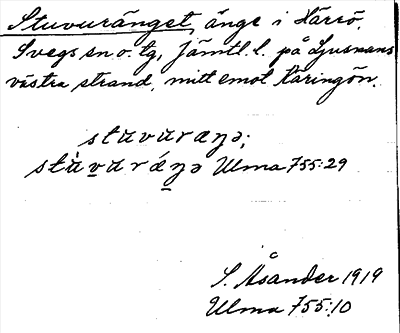 Stuvuränget, änge i Härrö,
Svegs sn o. tg, Jämtl. l. på Ljusnans
västra strand, mitt emot Käringön.
stuvuraŋə;
stu̇v̲uráŋə Ulma 755:29
S. Åsander 1919
Ulma 755:10